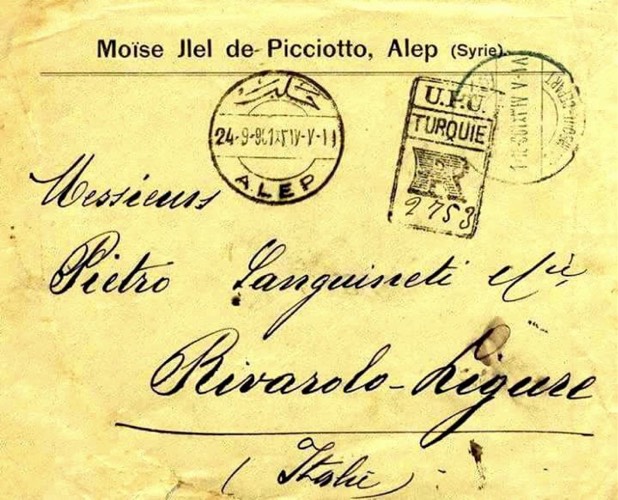 Moïse Jlel de Picciotto, Alep (Syrie)
حلب
24-9-98
ALEP
U.P.U.
TURQUIE
R
2753
DEPART
Messieurs
Pietro Sanguineti & Cie
Rivarolo-Ligure
(Italie